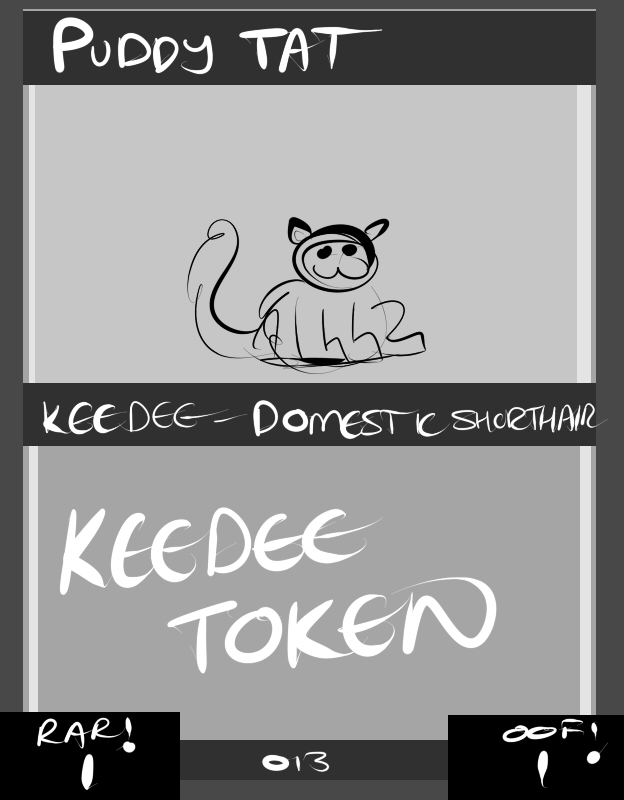 PUDDY TAT
KEEDEE - DOMESTIC SHORTHAIR
KEEDEE
TOKEN
RAR!
1
013
OOF!
1